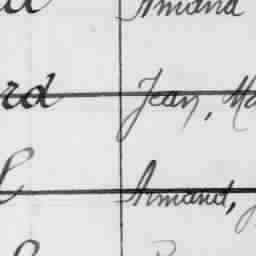 Amand
rd Jean, Ma
l Armand,